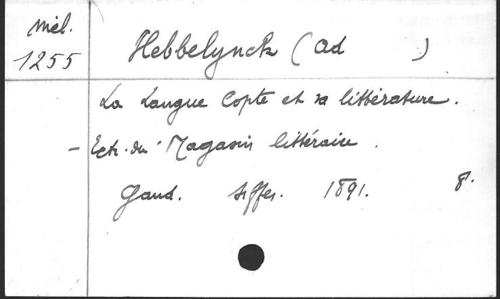 Mél.
1255
Hebbelynck (Ad )
La Langue Copte et sa littérature.
- Extr. du Magasin littéraire.
Gand. Siffer. 1891. 8.